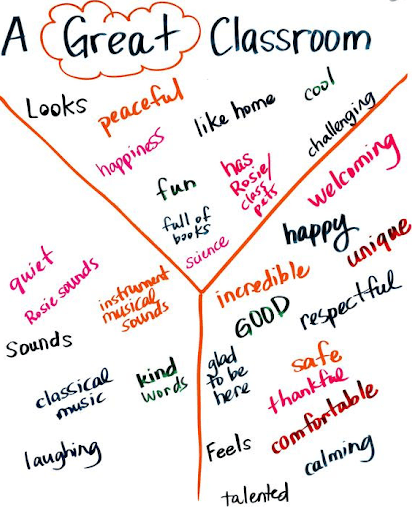 A Great Classroom
Looks
peaceful
like home
cool
happiness
challenging
fun
has
Rosie/
class
pets
full of
books
science
quiet
Rosie sounds
instrument
musical
sounds
Sounds
classical
music
kind
words
laughing
welcoming
happy
unique
incredible
GOOD
respectful
glad
to be
here
safe
thankful
comfortable
Feels
calming
talented